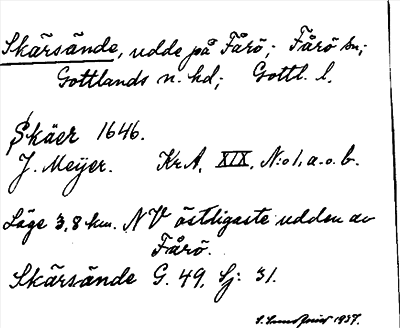 Skärsände, udde på Fårö; Fårö sn;
Gottlands n. hd; Gottl. l.
Skäer 1646.
J. Meÿer. Kr.A. XIX, N:o 1, a.o.b.
Läge 3,8 km. NV östligaste udden av
Fårö.
Skärsände G. 49, Sj: 31.
1937.